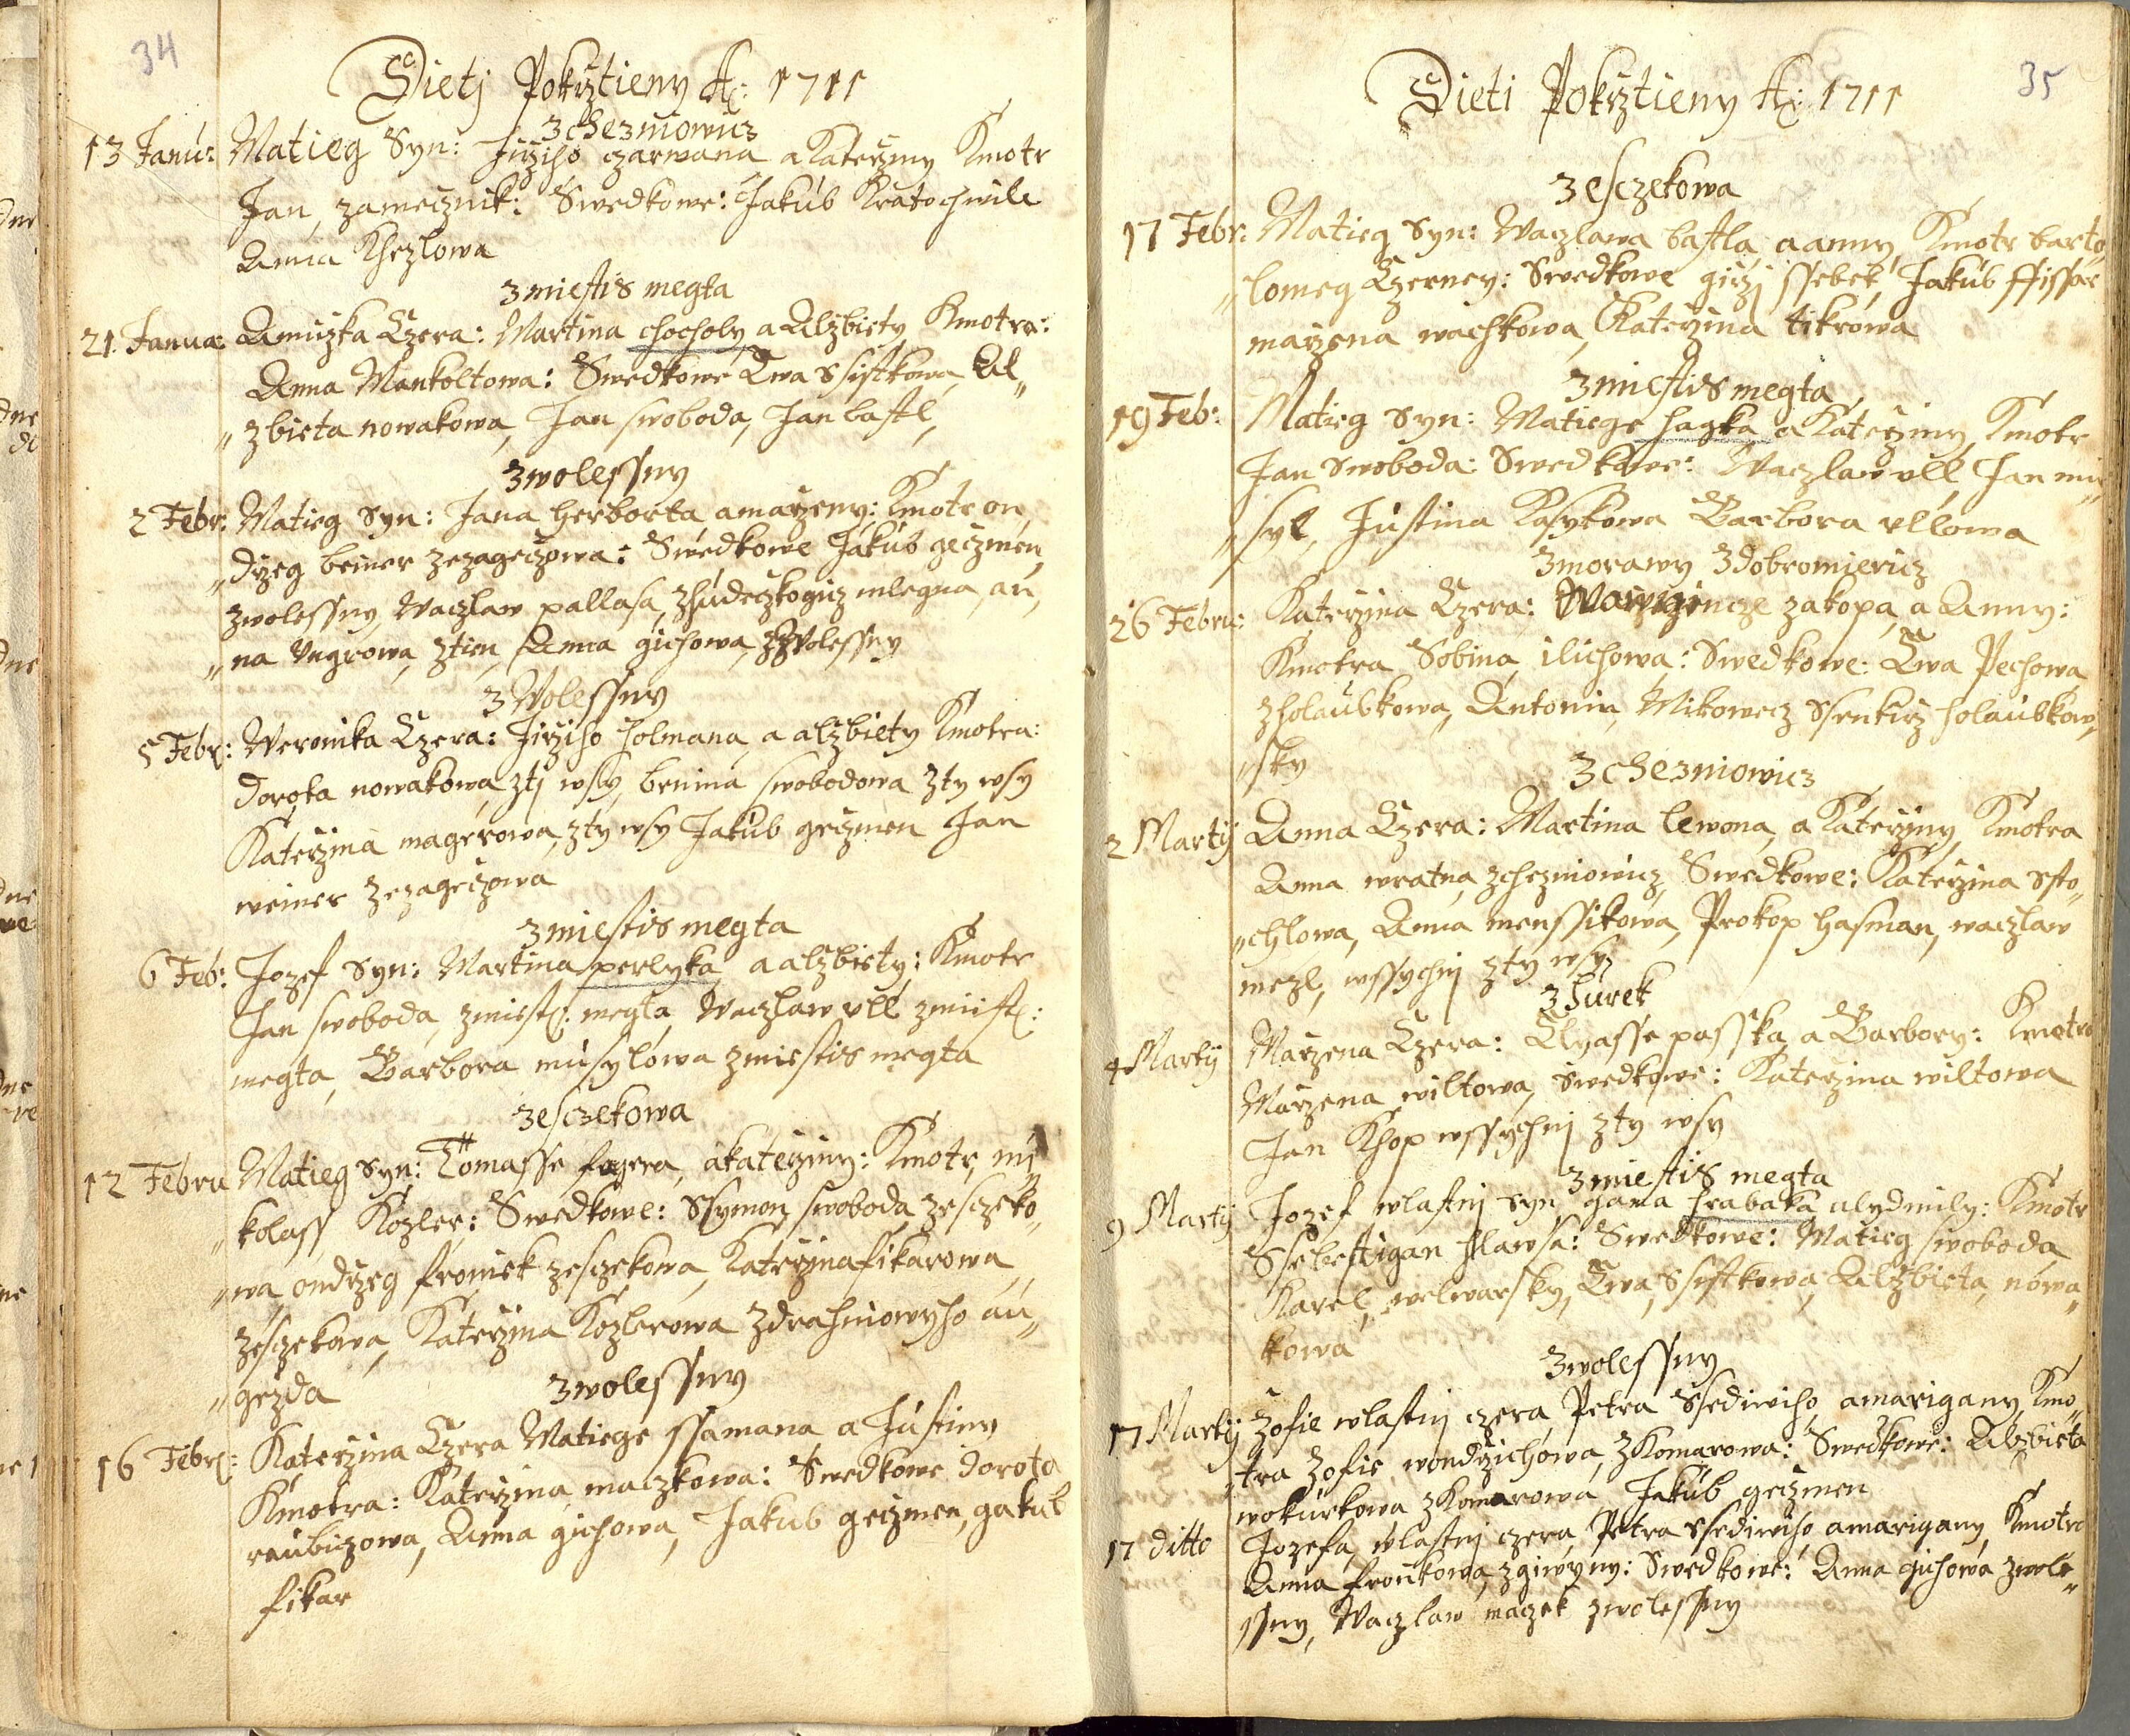 34
Dietj Pokrztieny Ao: 1711
z chezniowicz
13 Janu: Matieg Syn: Jirziho czarwana a Katerziny Kmotr
Jan zamecznik: Swedkowe: Jakub Kratochwile
Anna Khezlowa
z miestis megta
21. Janua: Anuzka Czera: Martina chocholy a Alzbiety Kmotra:
Anna Mankoltowa: Swedkowe Ewa Ssistkowa, Al„
„zbieta nowakowa, Jan swoboda, Jan bastl,
z wolessny
2 Febr: Matieg Syn: Jana herborta a marzeny: Kmotr on„
„drzeg beiner zezageczowa: Swedkowe Jakub geczmen,
zwolessny, Waczlaw pallasa, zhudeczkogicz mlegna, an„
„na Ungrowa, ztien, Anna gichowa, z Wolessny
z Wolessny
5 Febr: Weronika Czera: Jirziho holmana a alzbiety Kmotra:
dorota nowakowa ztj wsy, benina swobodowa zty wsy
Katerzina magerowa, zty wsy Jakub geczmen Jan
weiner zezageczowa
z miestis megta
6 Feb: Jozef Syn: Martina perlyka a alzbiety: Kmotr
Jan swoboda, zmiest: megta, Waczlaw ull zmiist:
megta, Barbora musylowa zmiestis megta
zesczekowa
12 Febru Matieg Syn: Tomasse fogera, a katerziny: Kmotr, mi„
„kolass Kozler: Swedkowe: Ssymon swoboda zesczeko„
„wa ondrzeg froniek zesczekowa, Katerzina fikarowa,
zesczekowa, Katerzina Kozlerowa zdrahniowyho au„
„gezda
z wolessny
16 Febr: Katerzina Czera Matiege ssamana a Justiny
Kmotra: Katerzina maczkowa: Swedkowe dorota
raubiczowa, Anna gichowa, Jakub geczmen, gakub
fikar
35
Dieti Pokrztieny Ao: 1711
z esczekowa
17 Febr: Matieg Syn: Waczlawa bastla a anny Kmotr barto„
„lomeg Czerney: Swedkowe girzj ssebek, Jakub ffisser
marzena wachkowa, Katerzina tikrowa
z miestis megta
19 Feb: Matieg Syn: Matiege hagka a Katerziny, Kmotr
Jan Swoboda: Swedkowe: Waczlaw ull Jan mu„
„syl, Justina Kasykowa Barbora ullowa
z morawy z dobromiericz
26 Febru: Katerzina Czera: Wawrzincze zakopa a Anny:
Kmotra Sobina ilichowa: Swedkowe: Ewa Pechowa
zholaubkowa, Antonin, Mikowecz Ssenkirz holaubkow„
„sky
z chezniowicz
2 Martij Anna Czera: Martina lewona, a Katerziny Kmotra
Anna wratna zchezniowicz, Swedkowe: Katerzina Ssto„
„chlowa, Anna menssikowa, Prokop hasman, waczlaw
mezl, wssychni zty wsy
z hurek
4 Martij Marzena Czera: Elyasse passka a Barbory: Kmotra
Marzena wiltowa, Swedkowe: Katerzina wiltowa
Jan Khop wssychni zty wsy
z miestis megta
9 Martij Jozef wlastnj Syn gana hrabaka a lydmily: Kmotr
Ssebestigan hlawsa: Swedkowe: Matieg swoboda
Karel welwarsky, Ewa Ssistkowa, Alzbieta, nowa„
kowa
z wolessny
17 Martij Zofie wlastnj czera Petra Ssediwiho a marigany Kmo„
„tra Zofie wondrzichowa zKomarowa: Swedkowe: Alzbieta
wokurkowa zKomarowa Jakub geczmen
17 ditto Jozefa, wlastnj czera Petra ssediwiho a marigany Kmotra
Anna fronkowa, zgiwyny: Swedkowe: Anna gichowa zwole„
ssny, Waczlaw maczek zwolessny